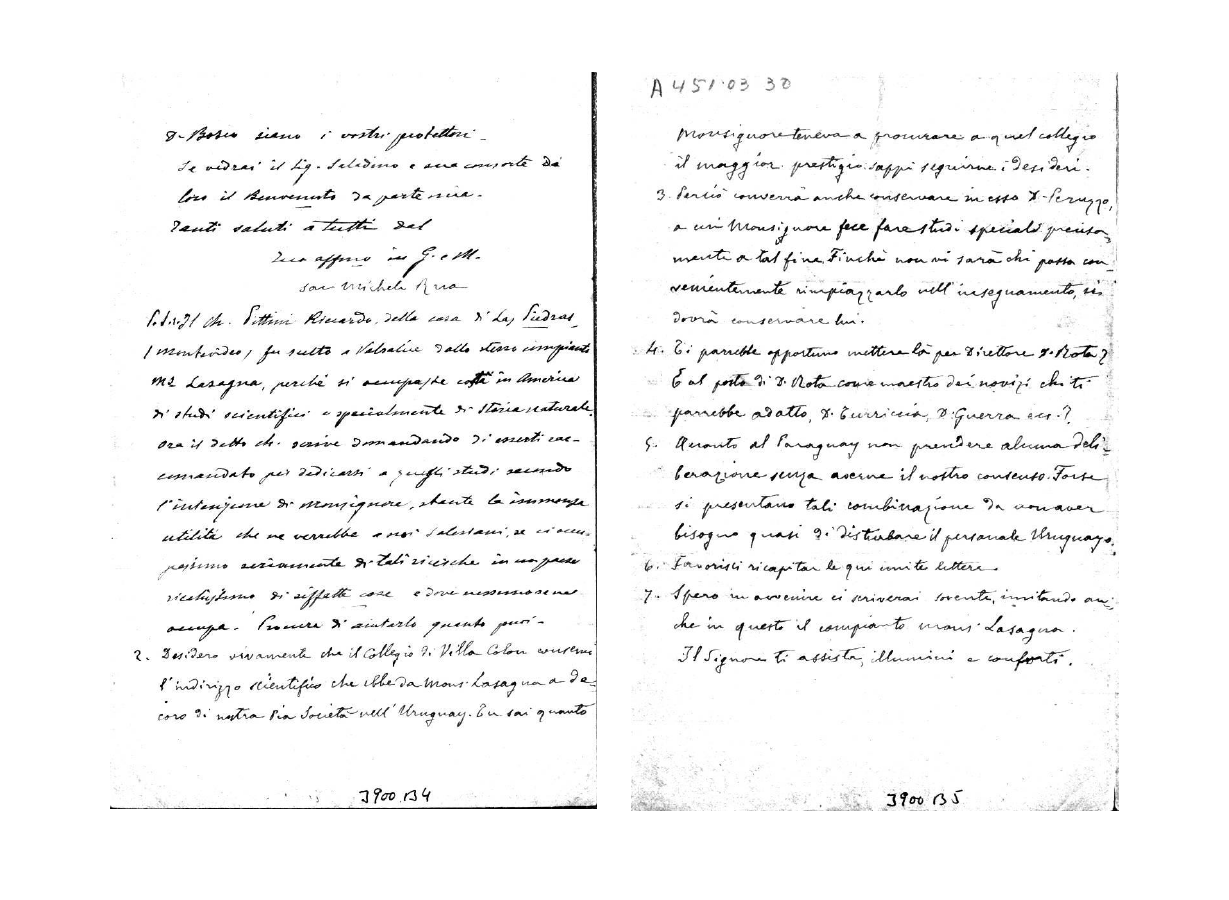 D. Bosco siano i vostri protettori.
Se vedrai il Sig. Saladino e sua consorte dà
loro il Benvenuto da parte mia.
Tanti saluti a tutti dal
Tuo affmo in G. e M.
Sac Michele Rua
P.S. 1. Il Ch. Pittini Riccardo, della casa di Las Piedras
(Montevideo) fu scelto a Valsalice dallo stesso compianto
Mr Lasagna, perché si occupasse costà in America
di studi scientifici e specialmente di Storia naturale.
Ora il detto ch. scrive domandando di esserti rac-
comandato per dedicarsi a quegli studi secondo
l'intenzione di Monsignore, stante la immensa
utilità che ne verrebbe a noi Salesiani, se ci occu-
passimo seriamente di tali ricerche in un paese
ricchissimo di siffatte cose e dove nessuno se ne
occupa. Procura di aiutarlo quanto puoi.
2. Desidero vivamente che il Collegio di Villa Colon conservi
l'indirizzo scientifico che ebbe da Mons. Lasagna a de-
coro di nostra Pia Società nell'Uruguay. Tu sai quanto
J900 B4
A 451.03 30
Monsignore teneva a procurare a quel collegio
il maggior prestigio: sappi seguirne i desideri.
3. Perciò converrà anche conservare in esso D. Peruzzo,
a cui Monsignore fece fare studi speciali precisa-
mente a tal fine. Finchè non vi sarà chi possa con-
venientemente rimpiazzarlo nell'insegnamento, si
dovrà conservare lui.
4. Ti parrebbe opportuno mettere là per Direttore D. Rota?
E al posto di D. Rota come maestro dei novizi chi ti
parrebbe adatto, D. Turriccia, D. Guerra ecc.?
5. Quanto al Paraguay non prendere alcuna deli-
berazione senza averne il nostro consenso. Forse
si presentano tali combinazione da non aver
bisogno quasi di disturbare il personale Uruguayo.
6. Favorisci ricapitar le qui unite lettere.
7. Spero in avvenire ci scriverai sovente, imitando an-
che in questo il compianto mons. Lasagna.
Il Signore ti assista, illumini e conforti.
J900 B5